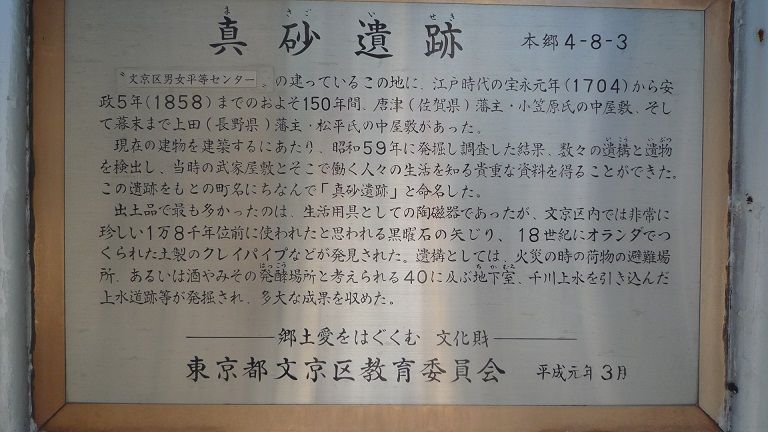 まさごいせき
真砂遺跡 本郷4-8-3
〝文京区男女平等センター〟の建っているこの地に、江戸時代の宝永元年(1704)から安
政5年(1858)までのおよそ150年間、唐津(佐賀県)藩主・小笠原氏の中屋敷、そし
て幕末まで上田(長野県)藩主・松平氏の中屋敷があった。
現在の建物を建築するにあたり、昭和59年に発掘し調査した結果、数々の遺構と遺物
を検出し、当時の武家屋敷とそこで働く人々の生活を知る貴重な資料を得ることができた。
この遺跡をもとの町名にちなんで「真砂遺跡」と命名した。
出土品で最も多かったのは、生活用具としての陶磁器であったが、文京区内では非常に
珍しい1万8千年位前に使われたと思われる黒曜石の矢じり、18世紀にオランダでつ
くられた土製のクレイパイプなどが発見された。遺構としては、火災の時の荷物の避難場
所、あるいは酒やみその発酵場所と考えられる40に及ぶ地下室、千川上水を引き込んだ
上水道跡等が発掘され、多大な成果を収めた。
郷土愛をはぐくむ 文化財
東京都文京区教育委員会 平成元年3月